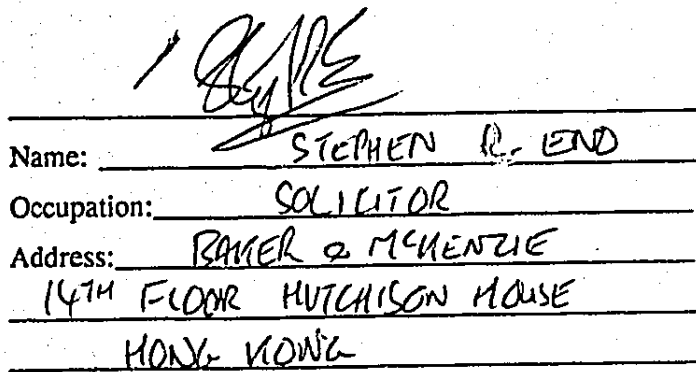 Name: STEPHEN R. END
Occupation: SOLICITOR
Address: BAKER & McKENZIE
14TH FLOOR HUTCHISON HOUSE
HONG KONG